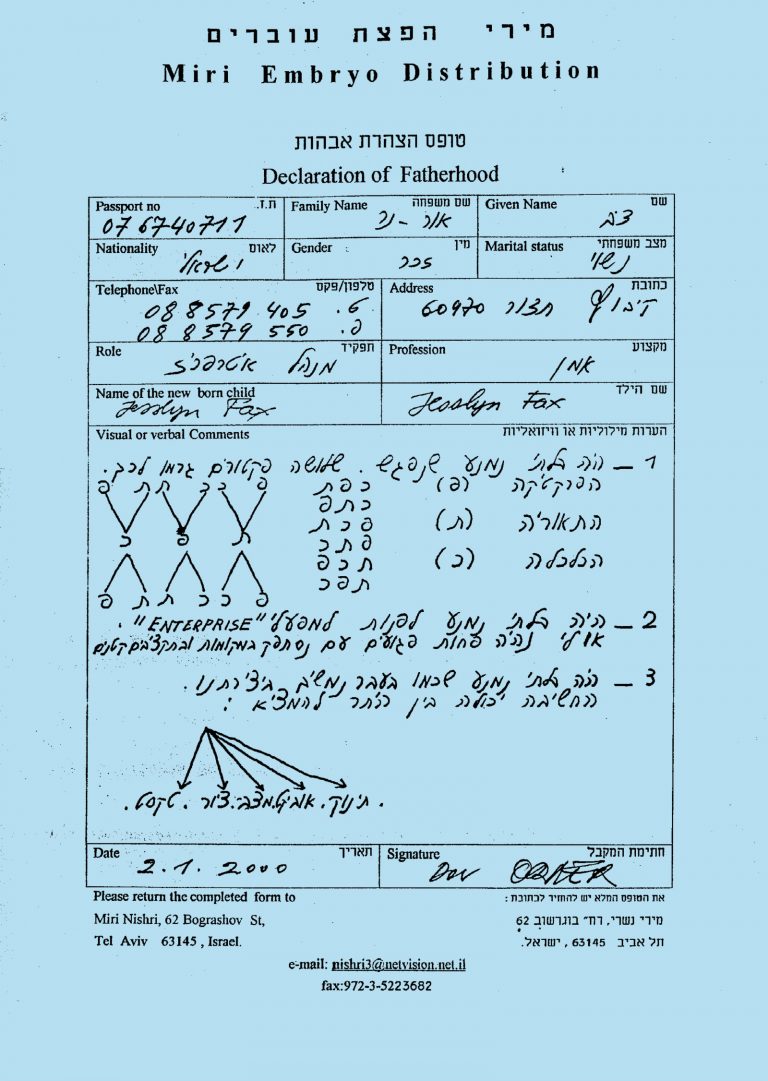 מירי הפצת עוברים
Miri Embryo Distribution
טופס הצהרת אבהות
Declaration of Fatherhood
Passport no ת.ז. Family Name שם משפחה Given Name שם
076740711 אור-נר דב
Nationality לאום Gender מין Marital status מצב משפחתי
ישראלי זכר נשוי
Telephone\Fax טלפון/פקס Address כתובת
08 8579 405 ט.
08 8579 550 פ.
קיבוץ חצור 60970
Role תפקיד Profession מקצוע
מנהל אמן
Name of the new born child שם הילד
Jesslyn Fax Jesslyn Fax
Visual or verbal Comments הערות מילוליות או וויזואליות
1 – היה בלתי נמנע שנפגש. שלושה פקטורים גרמו לכך.
הפרקטיקה (פ) כפת
כתפ
התאוריה (ת) פכת
פתכ
הכלכלה (כ) תכפ
תפכ
פ תת ככ פ
כ פ ת
פ תת ככ פ
2 – היה בלתי נמנע לפנות למפעלי "ENTERPRISE".
אולי נהיה פחות פגועים עם נסתפק במקומות ובתקציבים קטנים
3 – היה בלתי נמנע שכמו בעבר נמשיך ביצירתנו.
החשיבה יכולה בין היתר להמציא:
תינוק. אוביקט. מצב. ציור. טקסט.
Date תאריך Signature חתימת המקבל
2.1.2000 Dov ORNER
Please return the completed form to את הטופס המלא יש להחזיר לכתובת:
Miri Nishri, 62 Bograshov St, מירי נשרי, רח' בוגרשוב 62
Tel Aviv 63145 , Israel. תל אביב 63145, ישראל.
e-mail: nishri3@netvision.net.il
fax:972-3-5223682